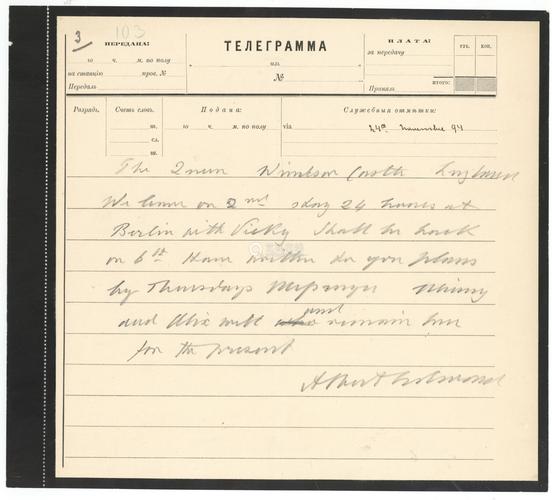 3
103
ПЕРЕДАНА:
ТЕЛЕГРАММА
ПЛАТА:
го ч. м. по полу
изъ
за передачу
РУБ. КОП.
на станцію пров. №
№
ИТОГО:
Передалъ
Принялъ
Разрядъ. Счетъ словъ. Подана: Служебныя отмѣтки:
го ч. м. по полу via
24 94
сл.
The Queen Windsor Castle England
We leave on 2nd stay 24 hours at
Berlin with Vicky Shall be back
on 6th Have written to you plans
by Thursdays Messenger Minny
and Alix will and remain here
for the present
Albert Edward